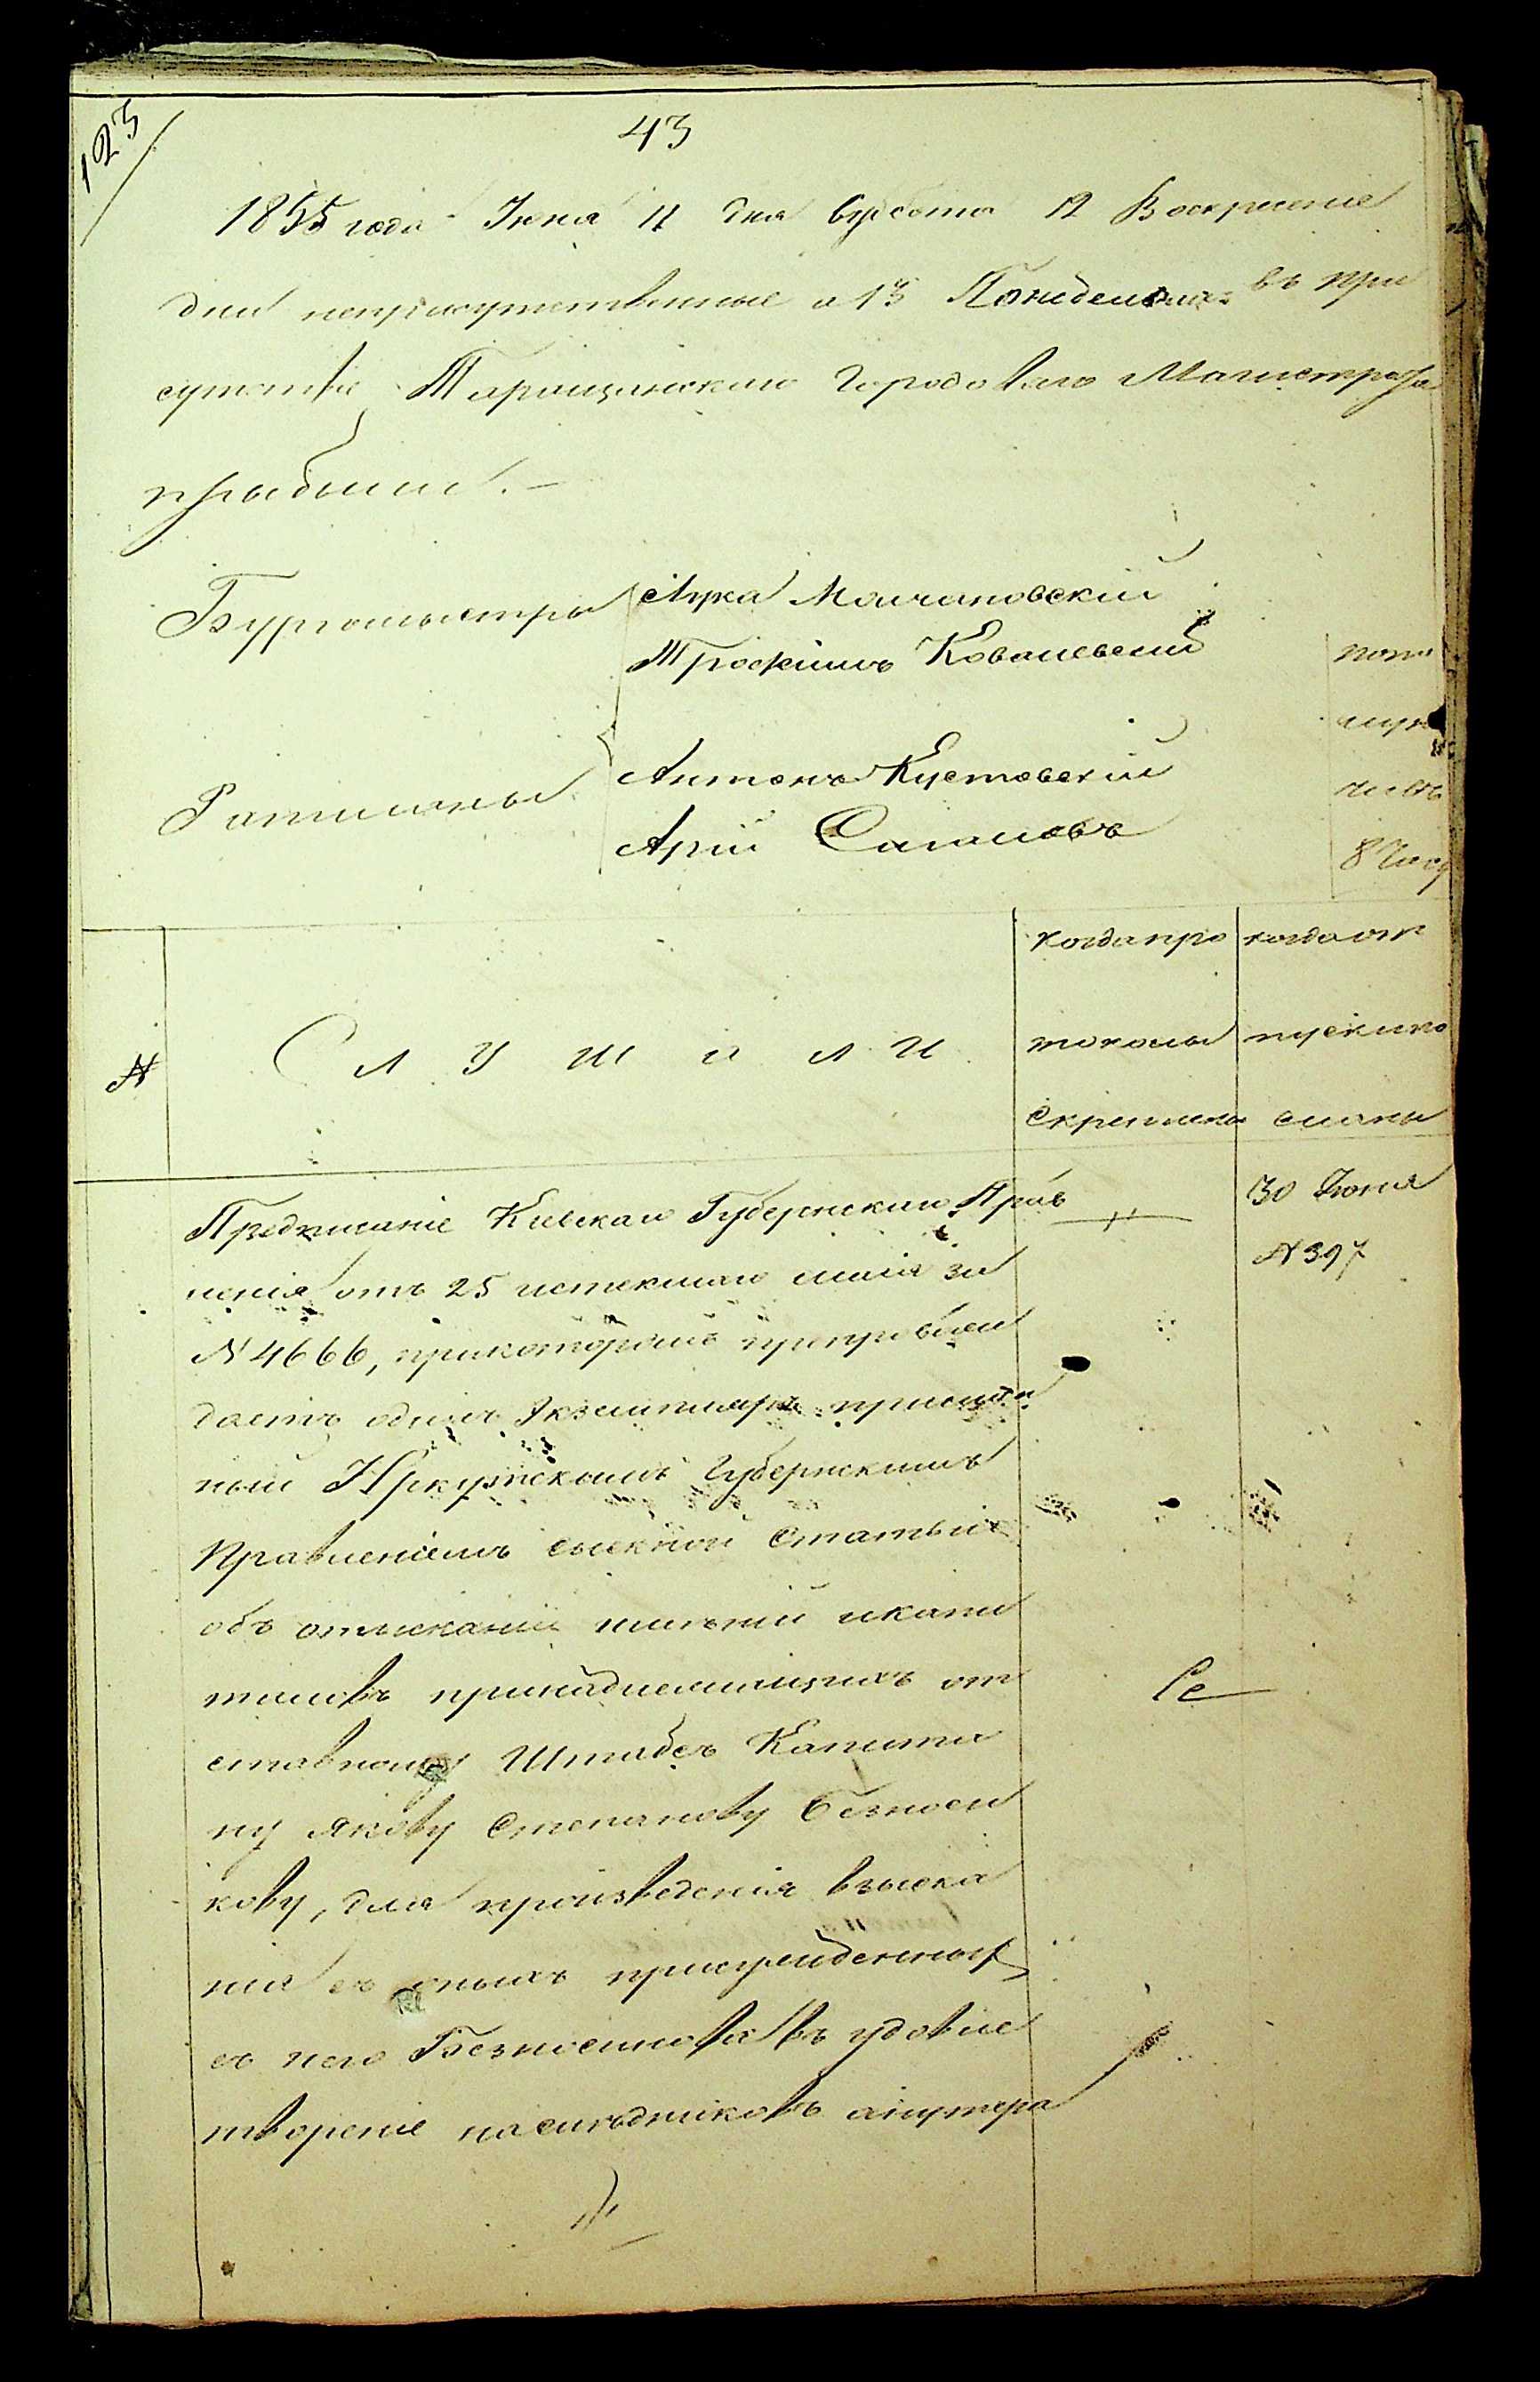 123
43
1855 года Июня 11 дня Суббота 12 Воскресеніе
дни неприсутственные а 13 Понеделокъ въ при
сутствіе Таращанскаго Городоваго Магистрата
прибыли. —
Бургомистры
Лука Молчановскій
Трофимъ Ковалевскій
Ратманы
Антонъ Кустовскій
Арій
8 Часу
№
Слушали
когда про
токолы
Скреплены
когда от
пуски по
сланы
Предписаніе Кіевскаго Губернскаго Прав
ленія отъ 25 истекшаго маія за
№ 4666, прикоторомъ препровож
даетъ одинъ Экземпляръ прислан
ный Иркутскимъ Губернскимъ
Правленіемъ сыскной Статьи
объ отысканіи имѣній икапи
таловъ принадлежащихъ от
ставному Штабсъ Капита
ну Якову Степанову Безноси
кову, для произведенія взыска
нія съ оныхъ присужденных
съ него Безносикова въ удовле
твореніе наслѣдниковъ
30 Июня
№ 397